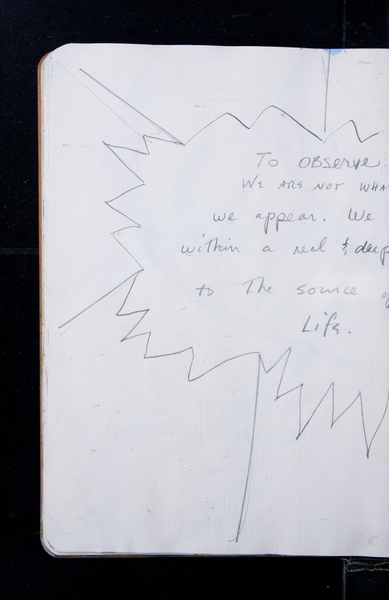 To OBSERVE
WE ARE NOT WHA
we appear. We
within a real & deep
to The source
Life.